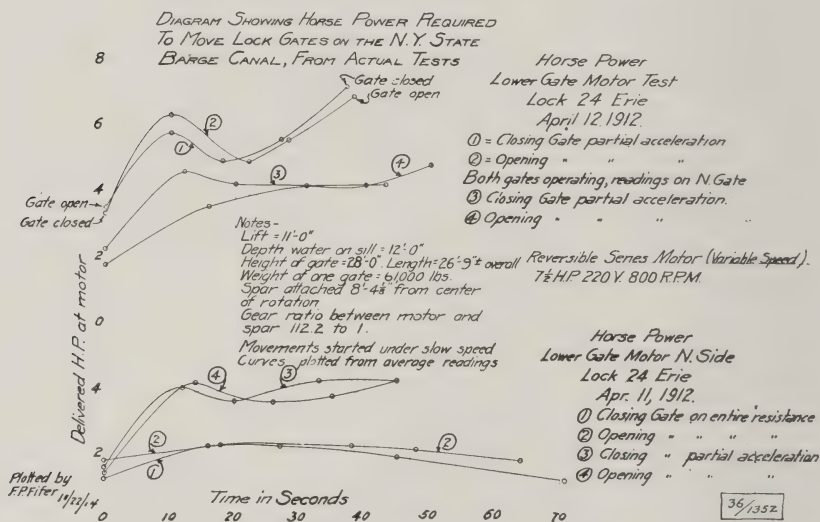 DIAGRAM SHOWING HORSE POWER REQUIRED
TO MOVE LOCK GATES ON THE N.Y. STATE
BARGE CANAL, FROM ACTUAL TESTS
Gate closed
Gate open
8
6
4
2
0
4
2
Delivered H.P. at motor
Gate open
Gate closed
②
①
③
④
Horse Power
Lower Gate Motor Test
Lock 24 Erie
April 12 1912.
① = Closing Gate partial acceleration
② = Opening " " "
Both gates operating, readings on N.Gate
③ Closing Gate partial acceleration.
④ Opening " " "
Notes-
Lift = 11'-0"
Depth water on sill = 12'-0"
Height of gate = 28'-0". Length = 26'-9"± overall
Weight of one gate = 61000 lbs.
Spar attached 8'-4⅛" from center
of rotation
Gear ratio between motor and
spar 112.2 to 1.
Movements started under slow speed
Curves plotted from average readings
Reversible Series Motor (Variable Speed).
7½ H.P. 220 V. 800 R.P.M.
Horse Power
Lower Gate Motor N. Side
Lock 24 Erie
Apr. 11, 1912.
① Closing Gate on entire resistance
② Opening " " " "
③ Closing " partial acceleration
④ Opening " " "
④
③
②
①
②
Plotted by
F.P. Fifer
Time in Seconds
0 10 20 30 40 50 60 70
36/1352